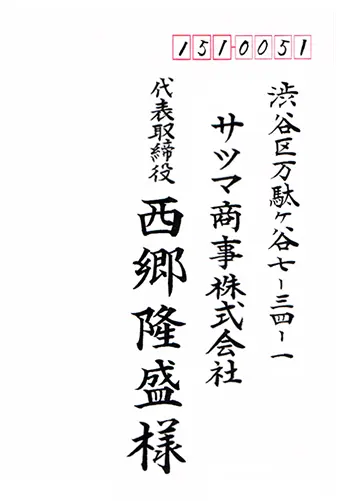 1510051
渋谷区万駄ヶ谷七ー三四ー一
サツマ商事株式会社
代表取締役
西郷隆盛様